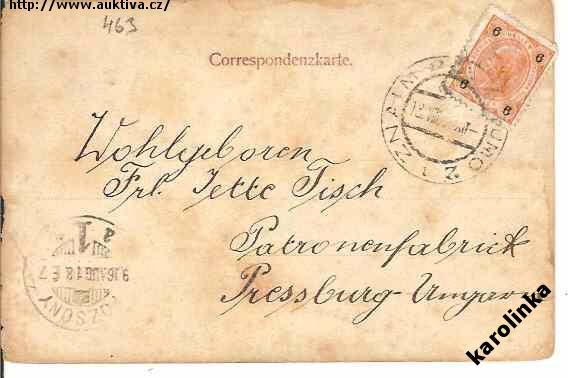 http://www.auktiva.cz/
463
Correspondenzkarte.
6 6
6 6
ZNAIM ZNOJMO
Wohlgeboren
Frl. Jette Tisch
Patronenfabrick
Pressburg-Ungarn
POZSONY
AUG 18
karolinka